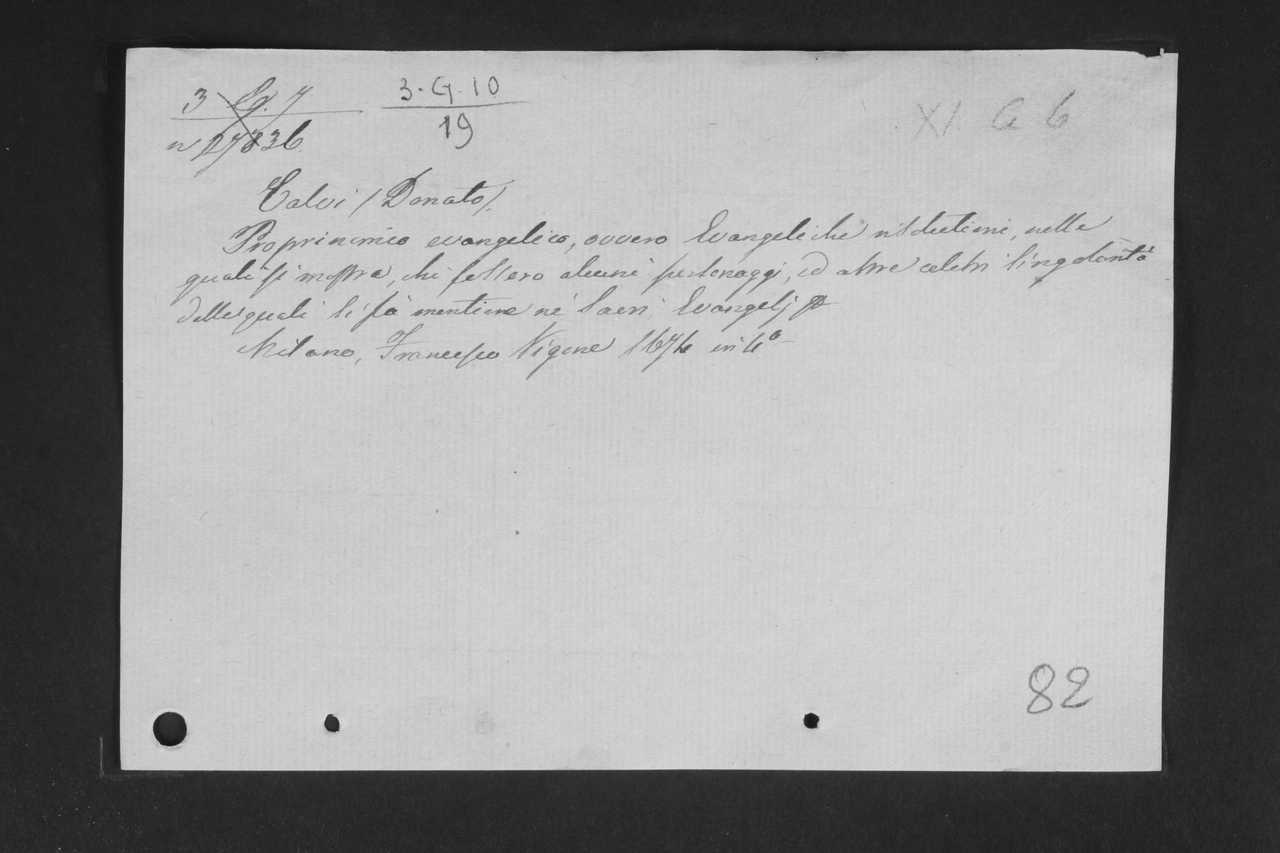 3 G. 7
3. G. 10
XI G 6
n 27836
19
Calvi (Donato).
Proprinomio evangelico, ovvero Evangeliche risolutioni, nelle
quali si mostra, chi fossero alcuni personaggi, ed altre celebri singolarità
delle quali si fà mentione ne' Sacri Evangelj
Milano, Francesco Vigone 1674 in 4°
82